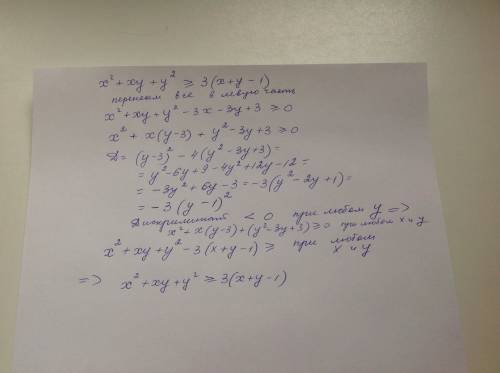 x² + xy + y² ≥ 3(x+y-1)
перенесем все в левую часть
x² + xy + y² - 3x - 3y + 3 ≥ 0
x² + x(y-3) + y² - 3y + 3 ≥ 0
D = (y-3)² - 4(y² - 3y + 3) =
= y² - 6y + 9 - 4y² + 12y - 12 =
= -3y² + 6y - 3 = -3(y² - 2y + 1) =
= -3(y-1)²
Дискриминант < 0 при любом y =>
x² + x(y-3) + (y² - 3y + 3) ≥ 0 при любом x и y
x² + xy + y² - 3(x+y-1) ≥ при любом
x и y
=> x² + xy + y² ≥ 3(x+y-1)